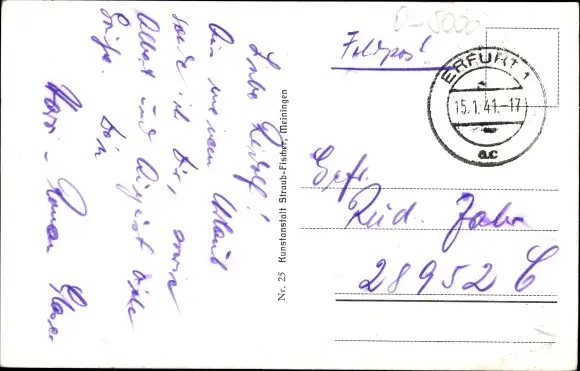 Lieber Rudolf!
Aus meinem Urlaub
sende ich Dir, sowie
Albert und August viele
Grüße. Dein
Nr. 25 Kunstanstalt Straub-Fischer, Meiningen
D-5000
Feldpost
ERFURT 1
15.1.41.-17
ac
Gefr.
Rud. Jahn
28952 C